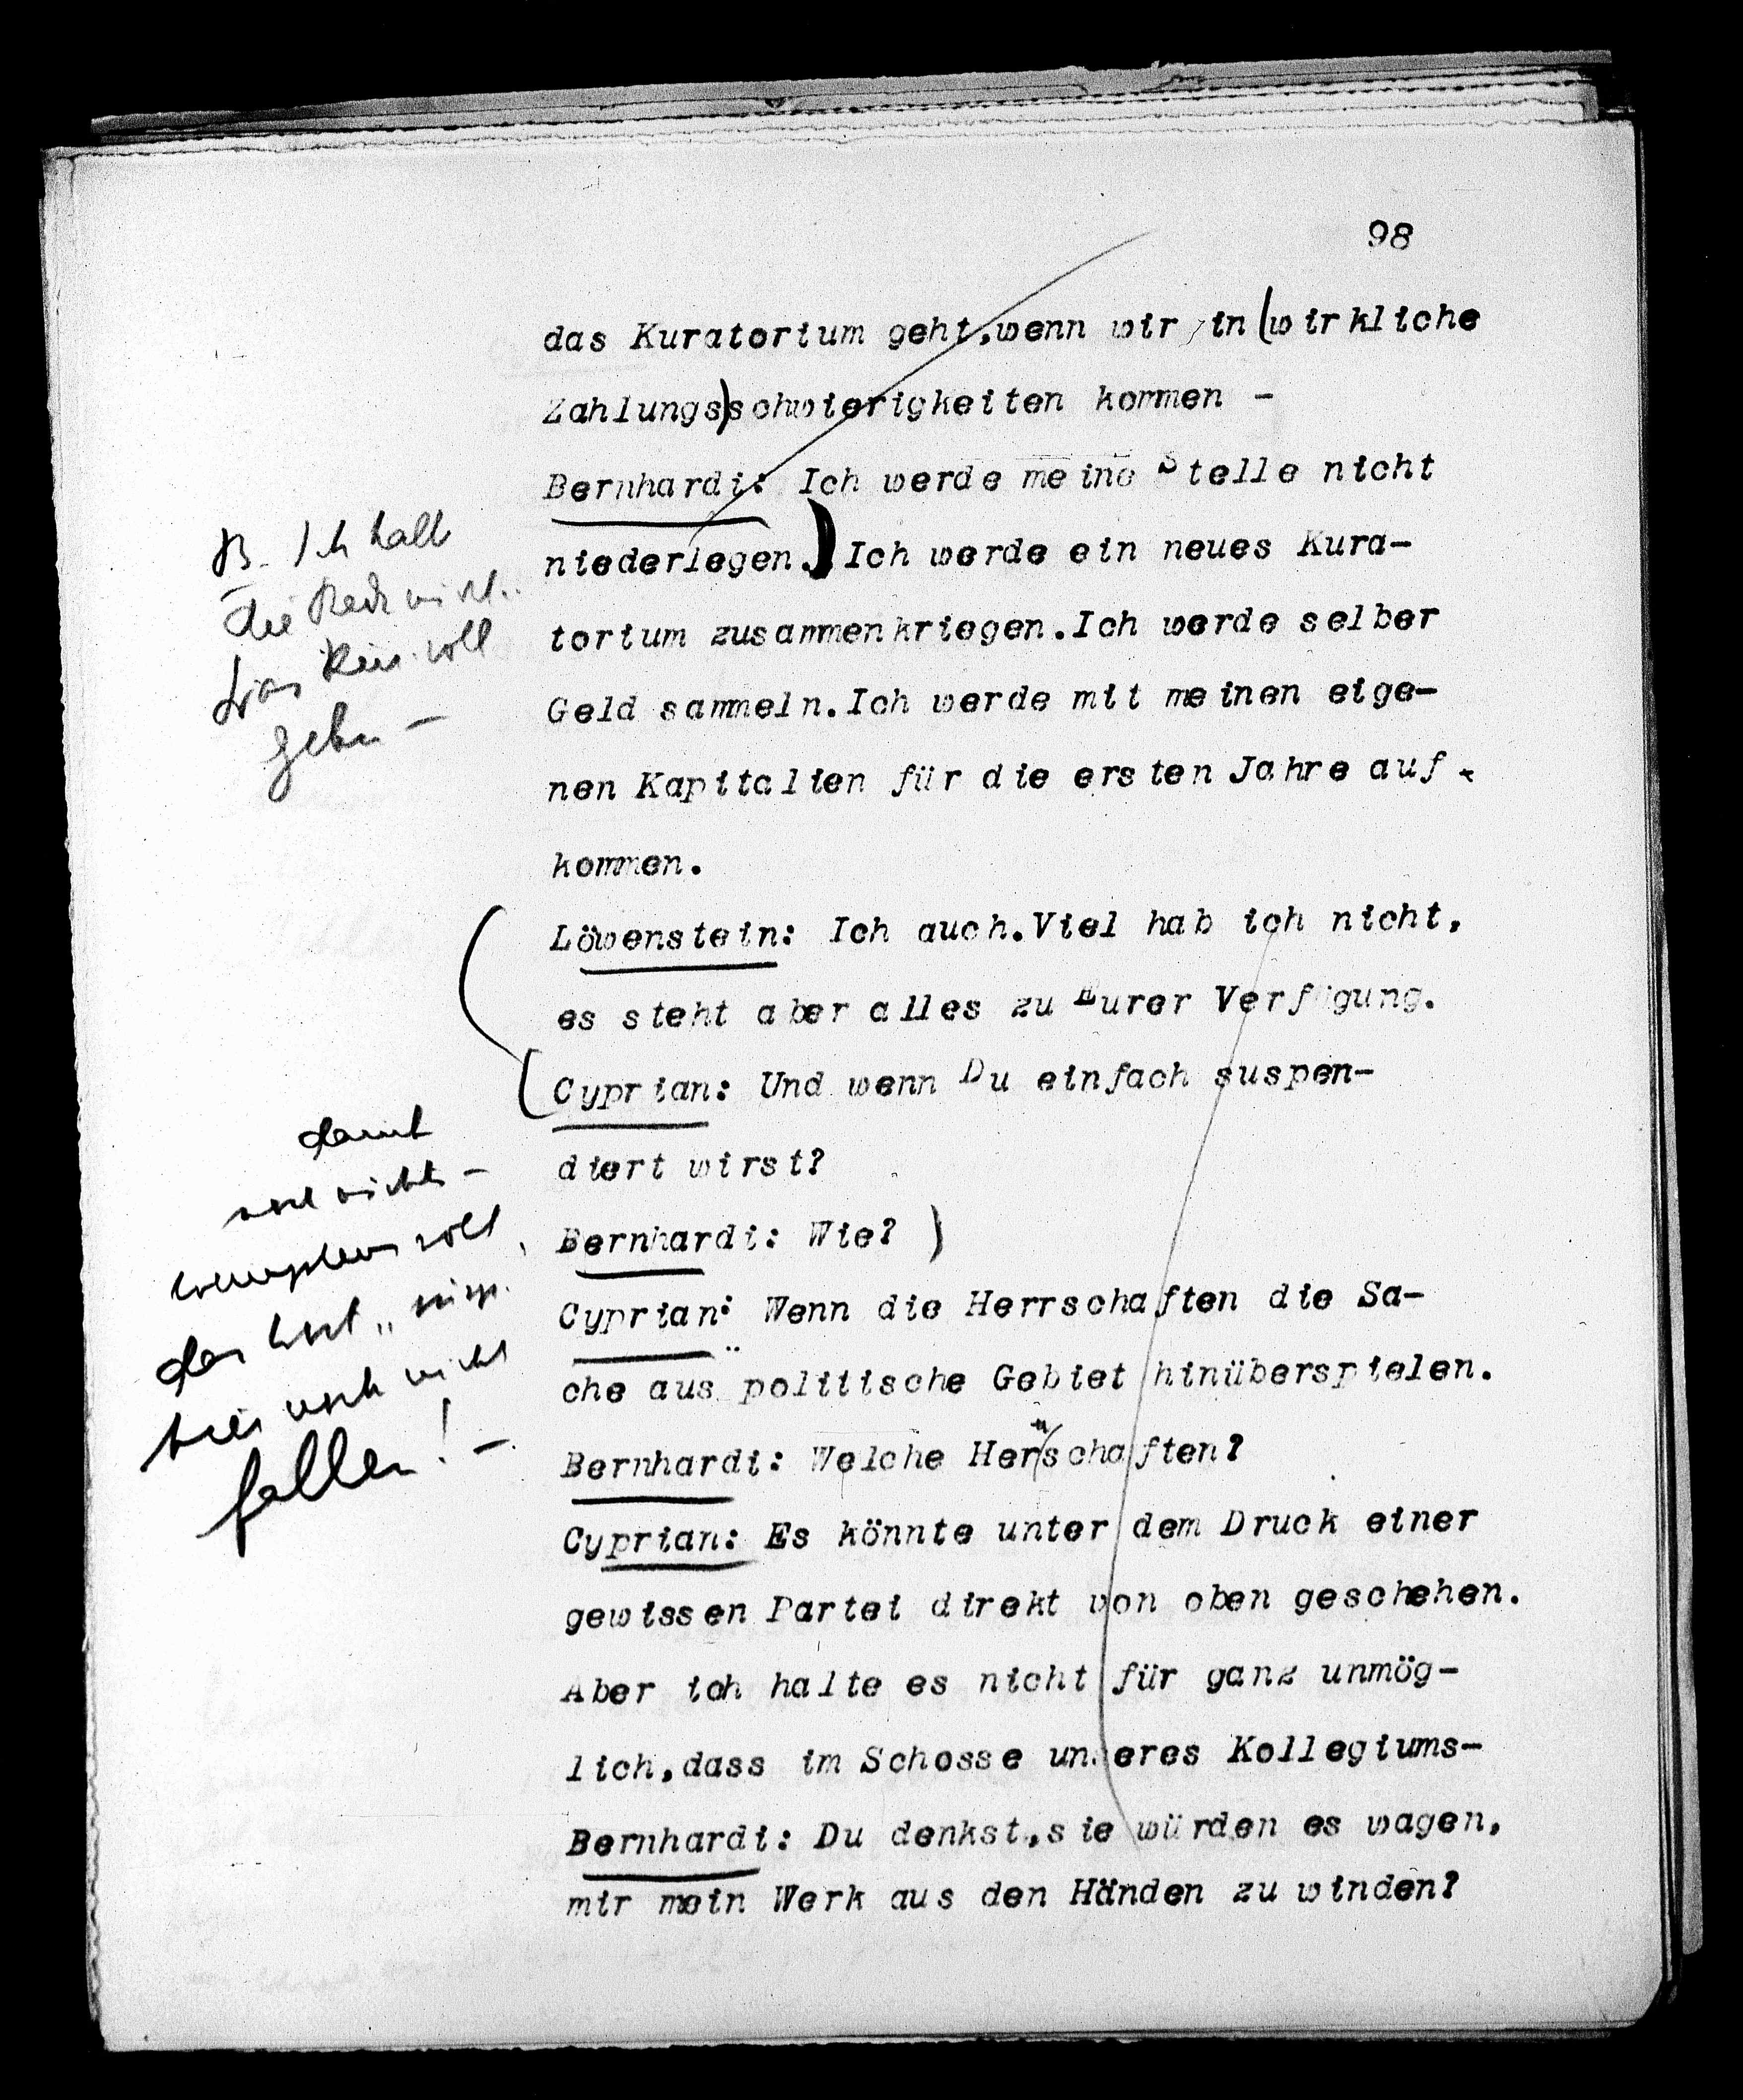 98
das Kuratorium geht,wenn wir in (wirkliche
Zahlungs)schwierigkeiten kommen -
Bernhardi: Ich werde meine Stelle nicht
niederlegen.) Ich werde ein neues Kura-
torium zusammenkriegen.Ich werde selber
Geld sammeln.Ich werde mit meinen eige-
nen Kapitalien für die ersten Jahre auf-
kommen.
(Löwenstein: Ich auch.Viel hab ich nicht,
es steht aber alles zu Eurer Verfügung.
(Cyprian: Und wenn Du einfach suspen-
diert wirst?
Bernhardi: Wie? )
Cyprian: Wenn die Herrschaften die Sa-
che aus politische Gebiet hinüberspielen.
Bernhardi: Welche Herrschaften?
Cyprian: Es könnte unter dem Druck einer
gewissen Partei direkt von oben geschehen.
Aber ich halte es nicht für ganz unmög-
lich,dass im Schosse unseres Kollegiums-
Bernhardi: Du denkst,sie würden es wagen,
mir mein Werk aus den Händen zu winden?
B. Ich halt
die Rede nicht..
geben -
damit
noch nichts -
das Wort
hier noch nicht
fallen! -